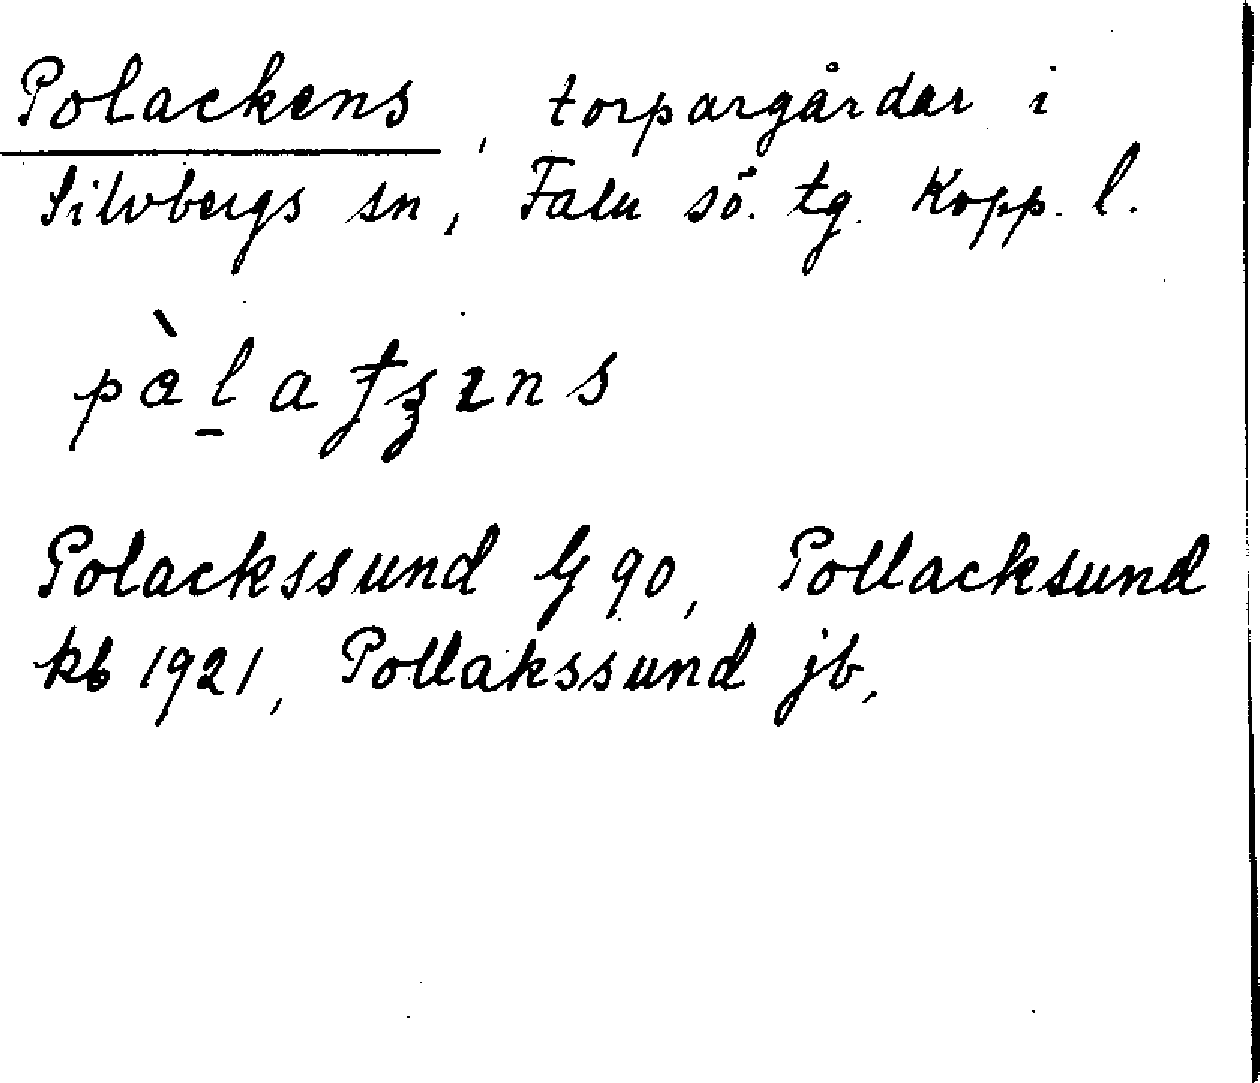 Polackens, torpargårdar i
Silvbergs sn, Falu sö. tg. Kopp. l.
Polackssund G 90, Pollacksund
kb 1921, Pollakssund jb,